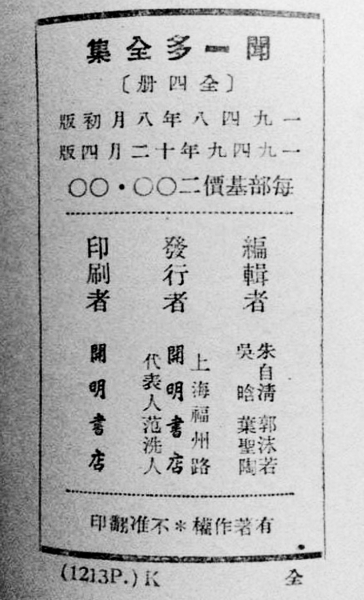 聞一多全集
〔全四册〕
一九四八年八月初版
一九四九年十二月四版
每部基價二〇〇·〇〇
編輯者
朱自清 郭沫若
吳晗 葉聖陶
發行者
上海福州路
開明書店
代表人范洗人
印刷者
開明書店
有著作權*不准翻印
(1213P.) K
全